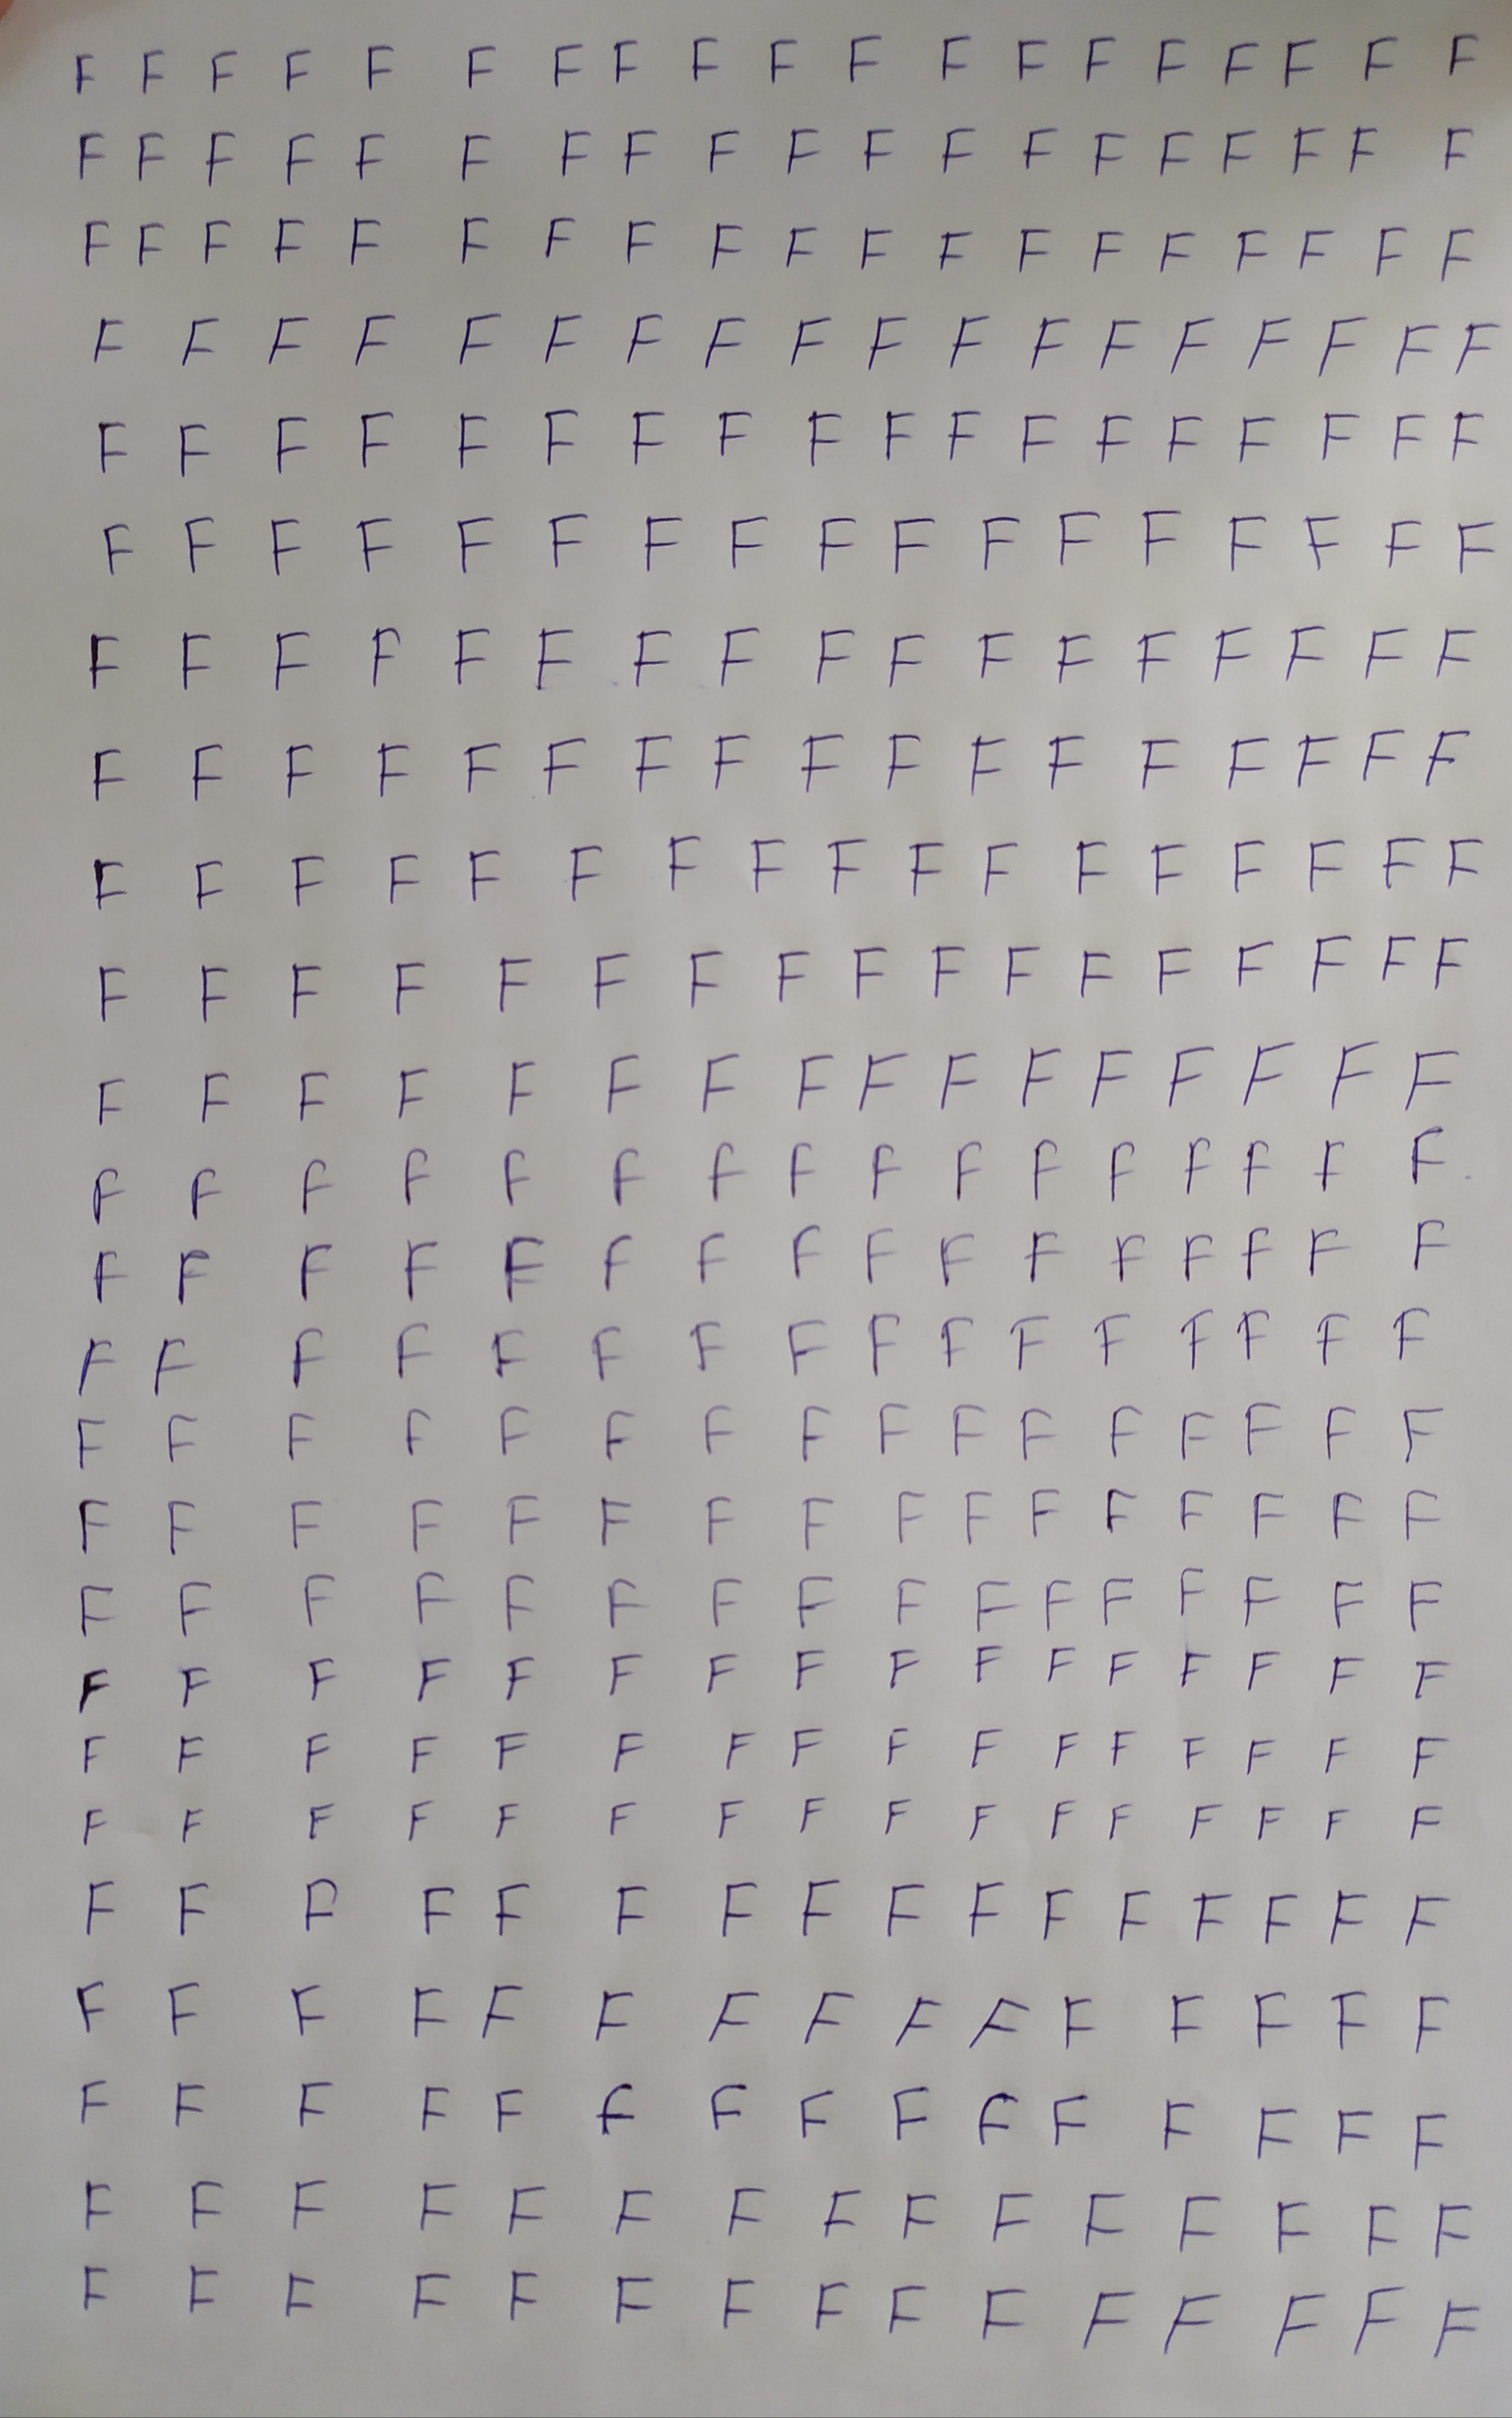 F F F F F F F F F F F F F F F F F F F
F F F F F F F F F F F F F F F F F F F
F F F F F F F F F F F F F F F F F F F
F F F F F F F F F F F F F F F F F F
F F F F F F F F F F F F F F F F F F
F F F F F F F F F F F F F F F F F
F F F F F F F F F F F F F F F F F
F F F F F F F F F F F F F F F F F
F F F F F F F F F F F F F F F F F
F F F F F F F F F F F F F F F F F
F F F F F F F F F F F F F F F F
F F F F F F F F F F F F F F F F
F F F F F F F F F F F F F F F F
F F F F F F F F F F F F F F F F
F F F F F F F F F F F F F F F F
F F F F F F F F F F F F F F F F
F F F F F F F F F F F F F F F F
F F F F F F F F F F F F F F F F
F F F F F F F F F F F F F F F F
F F F F F F F F F F F F F F F F
F F F F F F F F F F F F F F F F
F F F F F F F F F F F F F F F
F F F F F F F F F F F F F F F
F F F F F F F F F F F F F F F
F F F F F F F F F F F F F F F